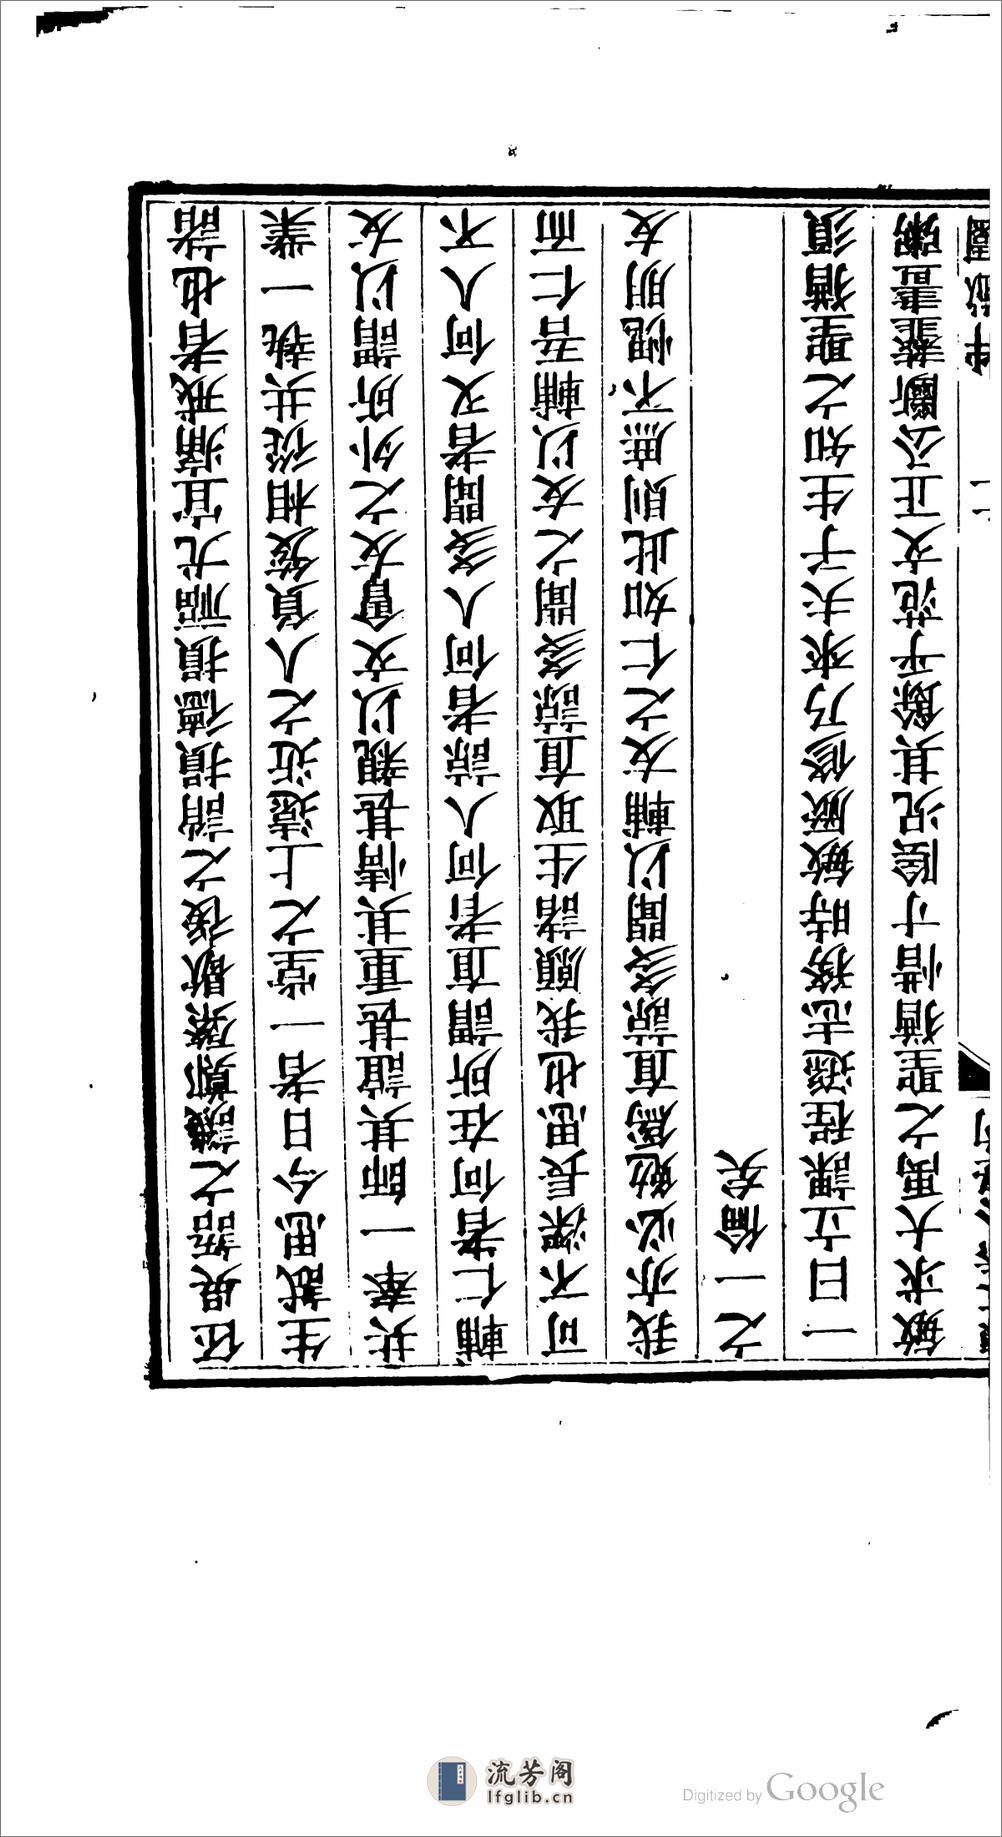 伾吳語之譏鄭綮歇後之誚損德損福尤宜痛戒者也諸
生試思今日者一堂之上遠近之人負笈相從共執一業
共奉一師其誼甚重其情甚親以文會友之外所謂以友
輔仁者何在所謂直者何人諒者何人多聞者又何人不
可不深長思也我願諸生取直諒多聞之友以輔吾仁而
我亦必勉爲直諒多聞以輔友之仁如此則庶不愧朋友
之一倫矣
一日立課程遜志務時敏厥修乃來夫子生知之聖猶須
敏求大禹之聖猶惜寸陰況其餘乎范文正公斷虀畫粥
流芳阁
lfglib.cn
Digitized by Google